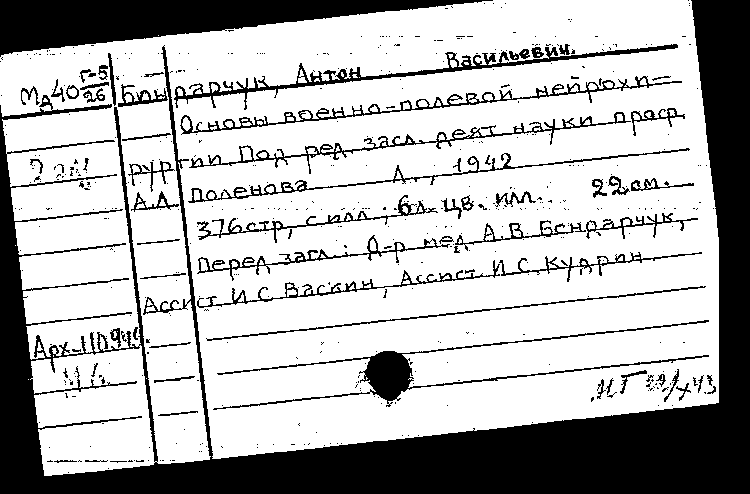 Мд40 Г-5/26 Бондарчук, Антон Васильевич.
Основы военно-полевой нейрохи=
рургии Под ред. засл. деят науки проф.
А.Л. Поленова Л., 1942
376стр, с илл ; 6л. цв. илл. 22см.
Перед загл.: Д-р мед А.В Бондарчук,
Ассист И С Васкин, Ассист. И С. Кудрин
2 экз
Арх-110949.
МГ /X43